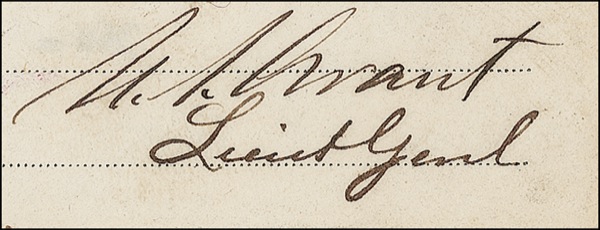 U. S. Grant
Lieut Genl